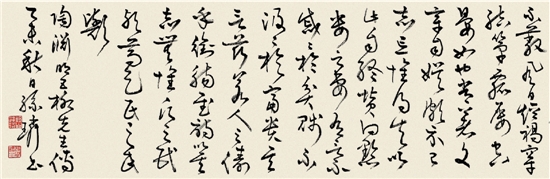 不蔽風日短褐穿
結簞瓢屢空
晏如也常著文
章自娛頗示己
志忘懷得失以
此自終贊曰黔
婁之妻有言不
戚戚於貧賤不
汲汲於富貴其
言茲若人之儔
乎銜觴賦詩以樂
其志無懷氏之民
歟葛天氏之民
歟
陶淵明五柳先生傳
乙未秋日孫書